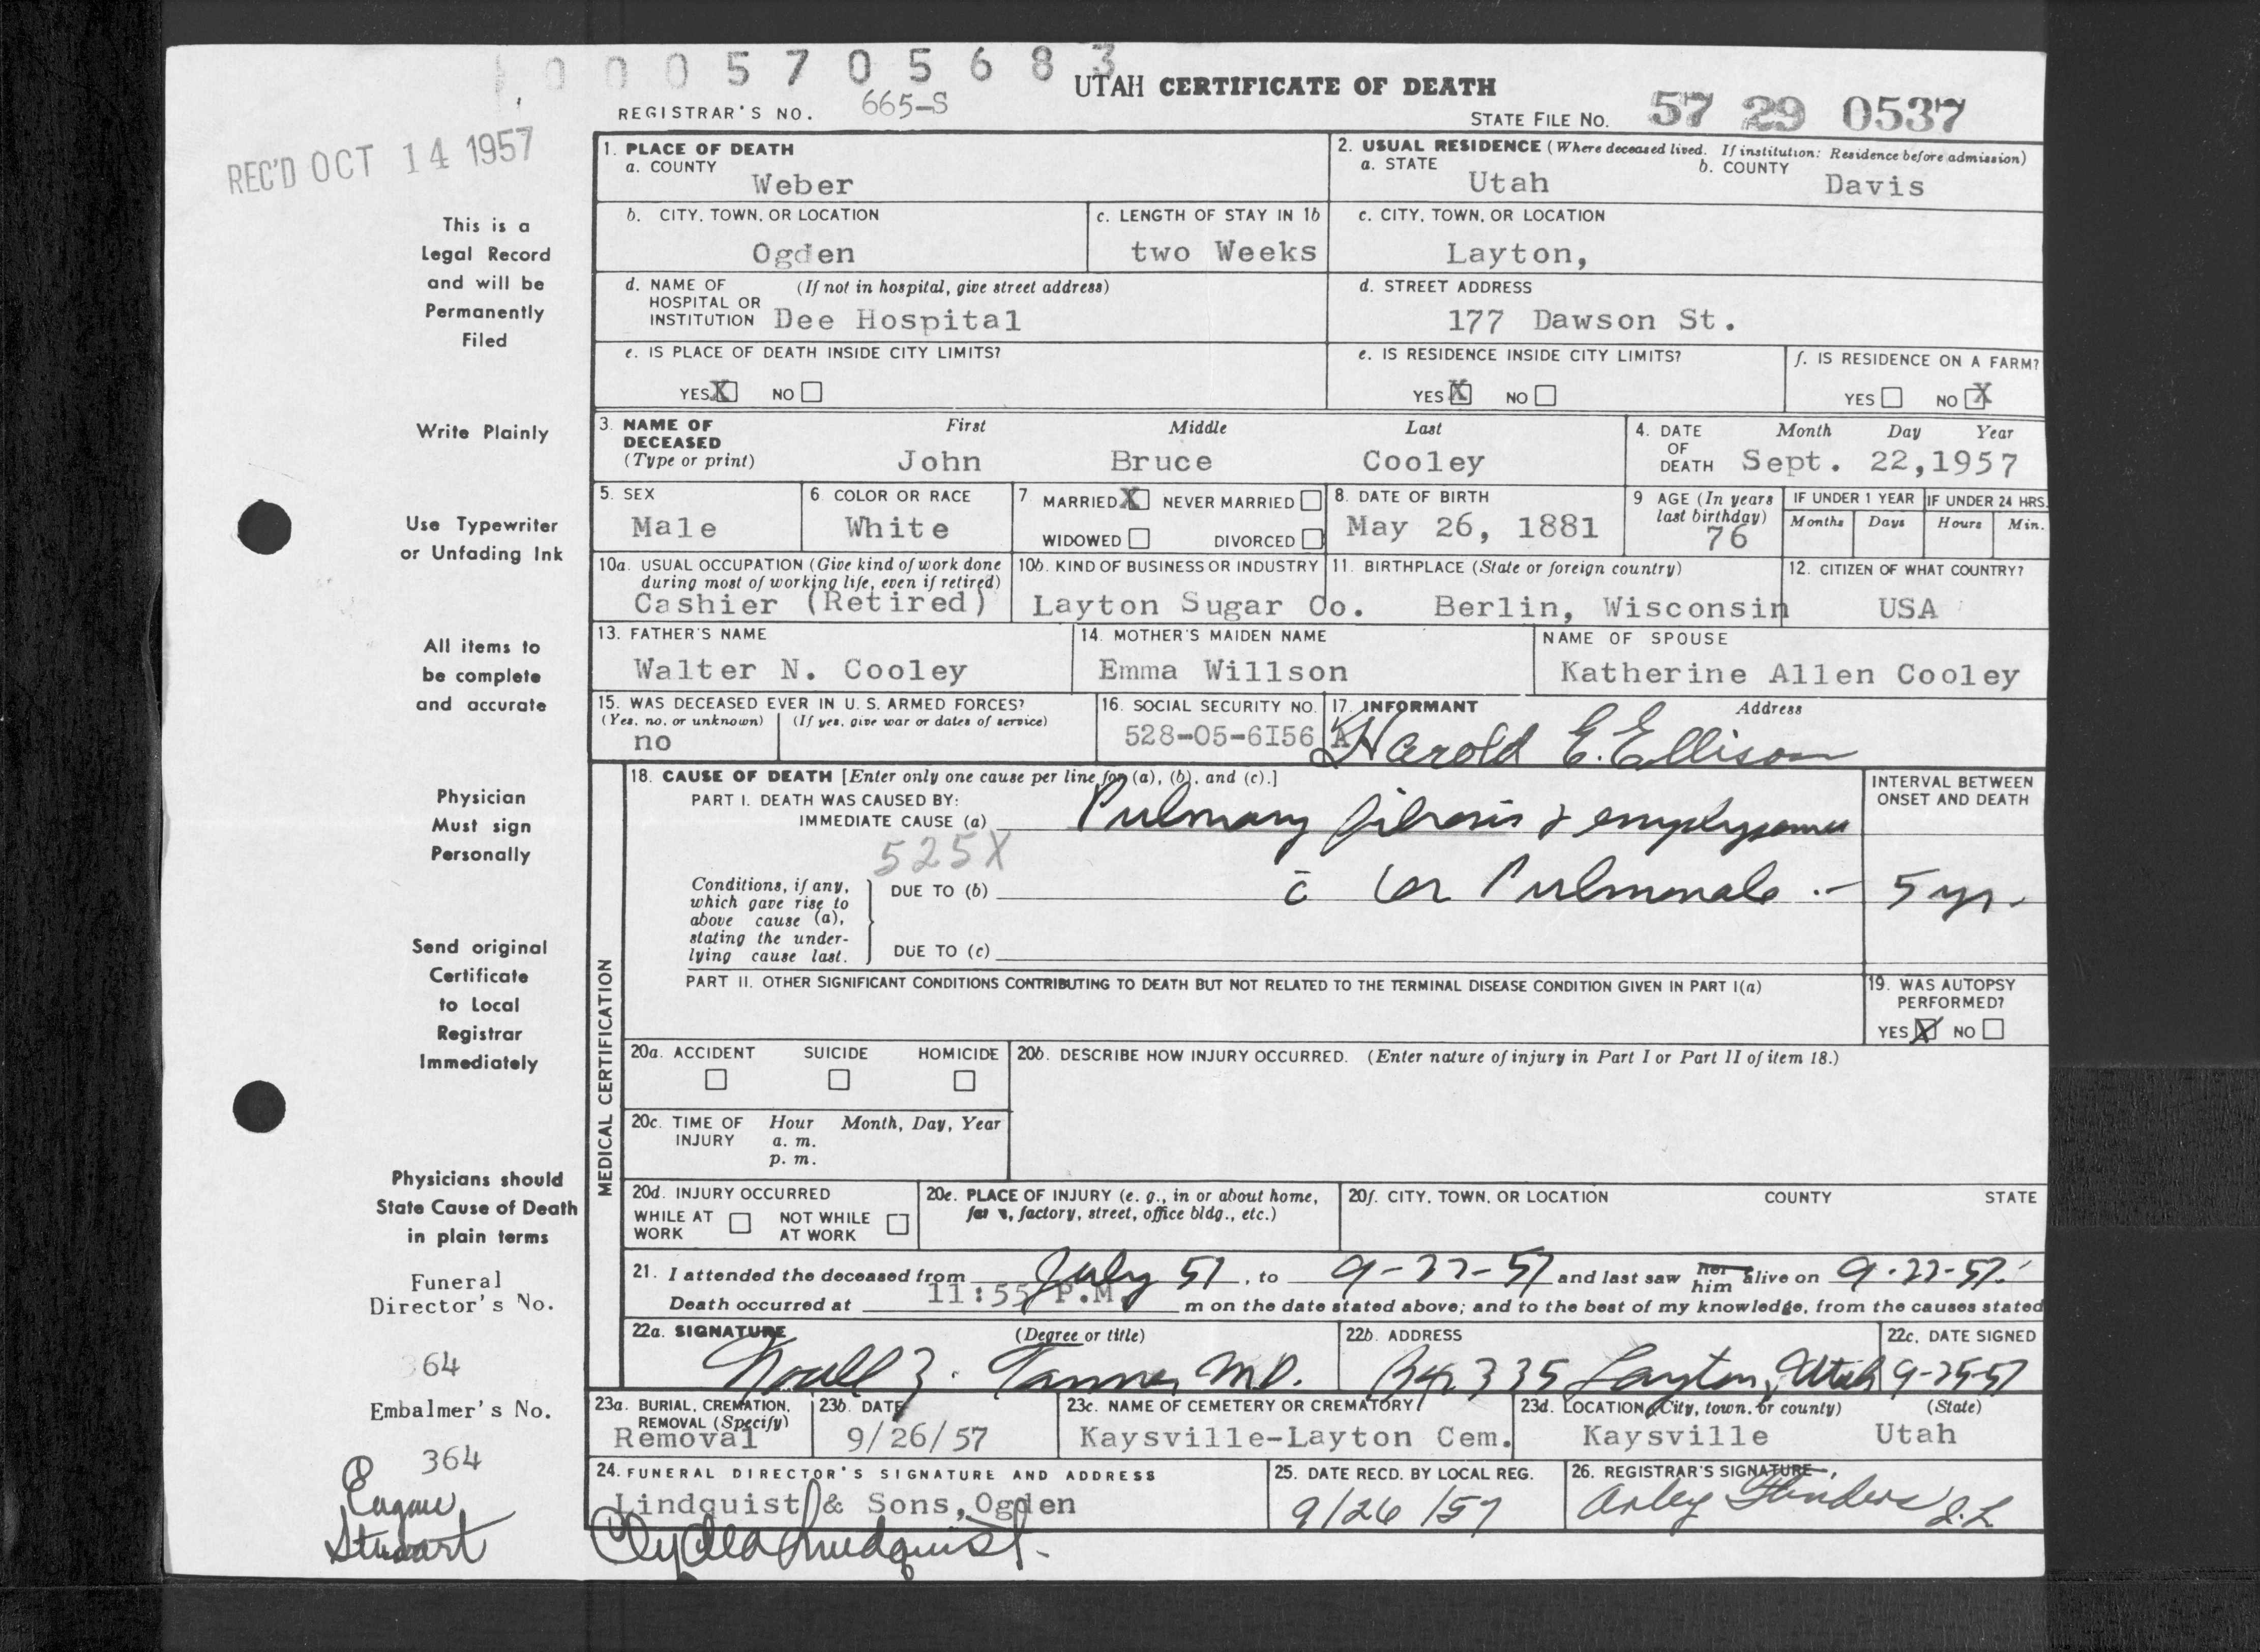 0005705683
UTAH CERTIFICATE OF DEATH
REGISTRAR'S NO. 665-S
STATE FILE NO. 57 29 0537
REC'D OCT 14 1957
This is a
Legal Record
and will be
Permanently
Filed
Write Plainly
Use Typewriter
or Unfading Ink
All items to
be complete
and accurate
Physician
Must sign
Personally
Send original
Certificate
to Local
Registrar
Immediately
Physicians should
State Cause of Death
in plain terms
Funeral
Director's No.
364
Embalmer's No.
364
Eugene
Stewart
1. PLACE OF DEATH
a. COUNTY
Weber
2. USUAL RESIDENCE (Where deceased lived. If institution: Residence before admission)
a. STATE b. COUNTY
Utah Davis
b. CITY, TOWN, OR LOCATION
Ogden
c. LENGTH OF STAY IN 1b
two Weeks
c. CITY, TOWN, OR LOCATION
Layton,
d. NAME OF (If not in hospital, give street address)
HOSPITAL OR
INSTITUTION Dee Hospital
d. STREET ADDRESS
177 Dawson St.
e. IS PLACE OF DEATH INSIDE CITY LIMITS?
YES X NO
e. IS RESIDENCE INSIDE CITY LIMITS?
YES X NO
f. IS RESIDENCE ON A FARM?
YES NO X
3. NAME OF DECEASED (Type or print)
First Middle Last
John Bruce Cooley
4. DATE OF DEATH
Month Day Year
Sept. 22,1957
5. SEX
Male
6. COLOR OR RACE
White
7. MARRIED X NEVER MARRIED
WIDOWED DIVORCED
8. DATE OF BIRTH
May 26, 1881
9 AGE (In years
last birthday)
76
IF UNDER 1 YEAR
Months Days
IF UNDER 24 HRS.
Hours Min.
10a. USUAL OCCUPATION (Give kind of work done
during most of working life, even if retired)
Cashier (Retired)
10b. KIND OF BUSINESS OR INDUSTRY
Layton Sugar Co.
11. BIRTHPLACE (State or foreign country)
Berlin, Wisconsin
12. CITIZEN OF WHAT COUNTRY?
USA
13. FATHER'S NAME
Walter N. Cooley
14. MOTHER'S MAIDEN NAME
Emma Willson
NAME OF SPOUSE
Katherine Allen Cooley
15. WAS DECEASED EVER IN U. S. ARMED FORCES?
(Yes, no, or unknown) (If yes, give war or dates of service)
no
16. SOCIAL SECURITY NO.
528-05-6I56 A
17. INFORMANT Address
Harold E. Ellison
MEDICAL CERTIFICATION
18. CAUSE OF DEATH [Enter only one cause per line for (a), (b), and (c).]
PART I. DEATH WAS CAUSED BY:
IMMEDIATE CAUSE (a) Pulmonary fibrosis & emphysema
525X
INTERVAL BETWEEN
ONSET AND DEATH
Conditions, if any,
which gave rise to
above cause (a),
stating the under-
lying cause last.
DUE TO (b) c̄ Cor Pulmonale 5 yr.
DUE TO (c)
PART II. OTHER SIGNIFICANT CONDITIONS CONTRIBUTING TO DEATH BUT NOT RELATED TO THE TERMINAL DISEASE CONDITION GIVEN IN PART I(a)
19. WAS AUTOPSY
PERFORMED?
YES X NO
20a. ACCIDENT SUICIDE HOMICIDE
20b. DESCRIBE HOW INJURY OCCURRED. (Enter nature of injury in Part I or Part II of item 18.)
20c. TIME OF INJURY
Hour Month, Day, Year
a. m.
p. m.
20d. INJURY OCCURRED
WHILE AT WORK NOT WHILE AT WORK
20e. PLACE OF INJURY (e. g., in or about home,
farm, factory, street, office bldg., etc.)
20f. CITY, TOWN, OR LOCATION COUNTY STATE
21. I attended the deceased from July 57, to 9-22-57 and last saw her him alive on 9-22-57.
Death occurred at 11:55 P.M. m on the date stated above; and to the best of my knowledge, from the causes stated
22a. SIGNATURE (Degree or title)
Noall Z. Tanner M.D.
22b. ADDRESS
Box 335 Layton, Utah
22c. DATE SIGNED
9-25-57
23a. BURIAL, CREMATION,
REMOVAL (Specify)
Removal
23b. DATE
9/26/57
23c. NAME OF CEMETERY OR CREMATORY
Kaysville-Layton Cem.
23d. LOCATION (City, town, or county) (State)
Kaysville Utah
24. FUNERAL DIRECTOR'S SIGNATURE AND ADDRESS
Lindquist & Sons, Ogden
Clyde Lindquist.
25. DATE RECD. BY LOCAL REG.
9/26/57
26. REGISTRAR'S SIGNATURE
Arley Flinders